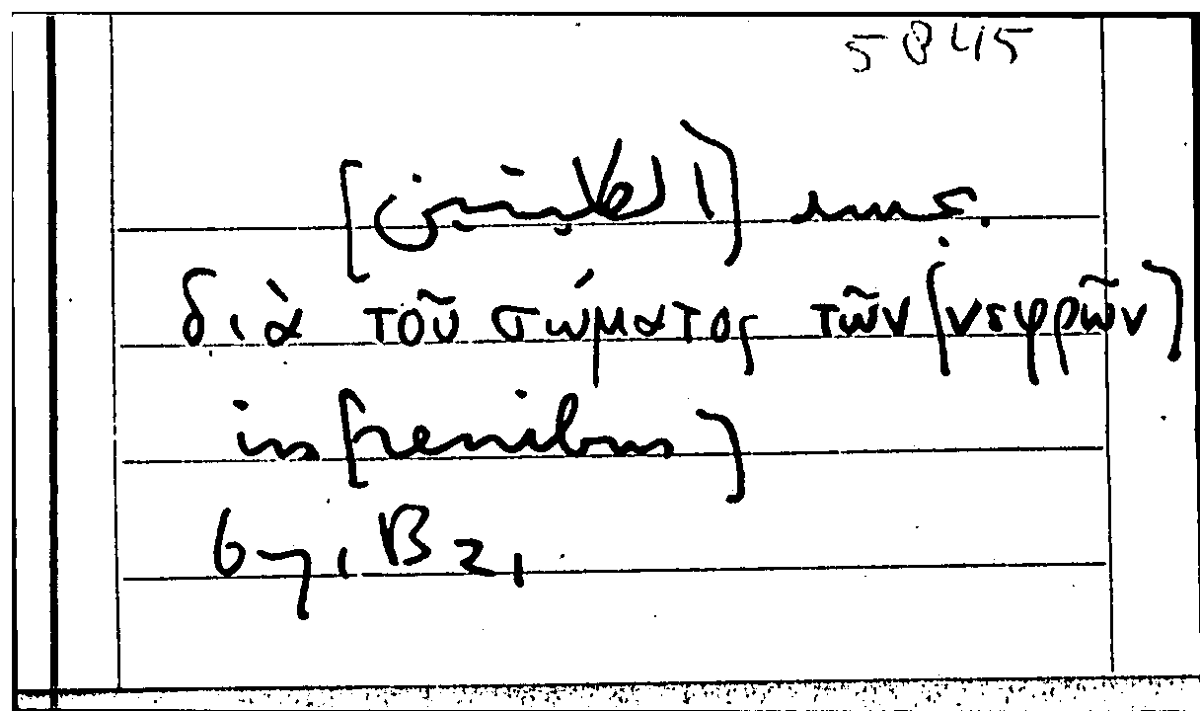 5845
جسم [الكليتين]
διὰ τοῦ σώματος τῶν [νεφρῶν]
in [renibus]
67, B 2,